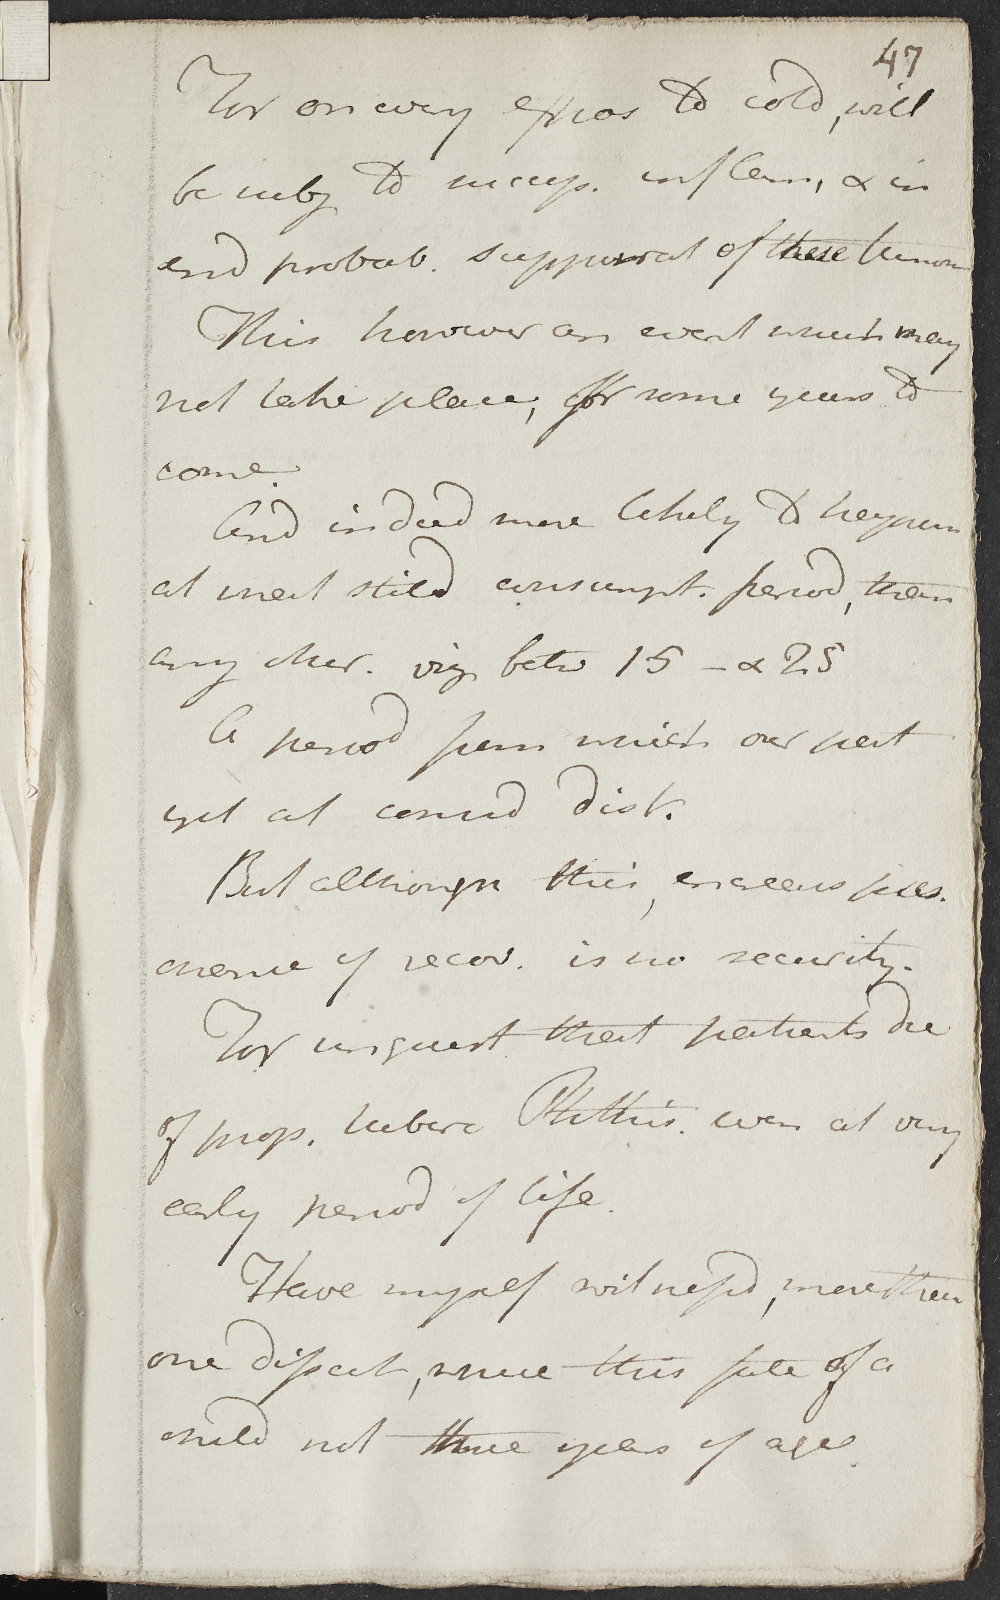 47
For on every expos to cold, will
be subj to incip. inflam, & in
end probab. suppurat of these tumors
This however an event which may
not take place, for some years to
come.
And indeed more likely to happen
at what stild consumpt. period, than
any other. viz betw 15 - & 25
A period from which our pat
yet at consid dist.
But although this, increases pres.
chance of recov. is no security.
For unquest that patients die
of prop. tuberc Phthisis. even at very
early period of life.
Have myself witnessd, more than
one dissect, where this fate of a
child not three years of age.